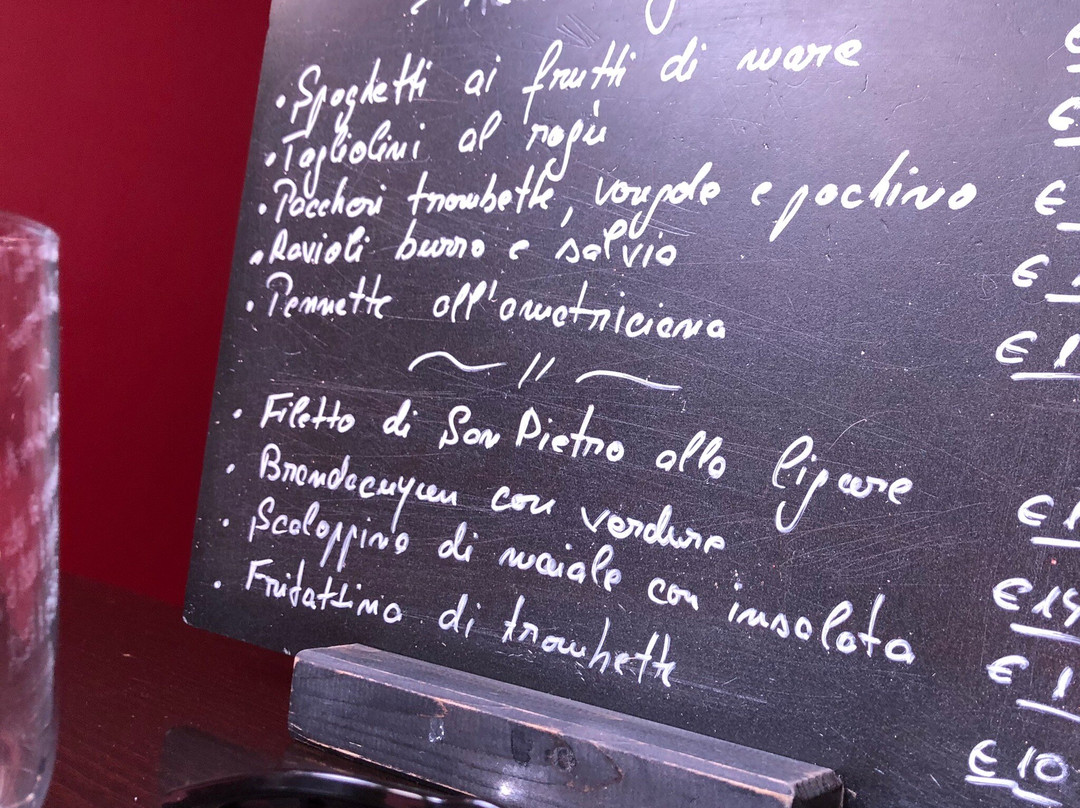 • Spaghetti ai frutti di mare €
• Tagliolini al ragù €
• Paccheri trombette, vongole e pachino €
• Ravioli burro e salvia € 1
• Pennette all'amatriciana € 1
~ // ~
• Filetto di San Pietro alla ligure € 1
• Brandacujun con verdure € 14
• Scaloppina di maiale con insalata € 1
• Frittattina di trombette € 10